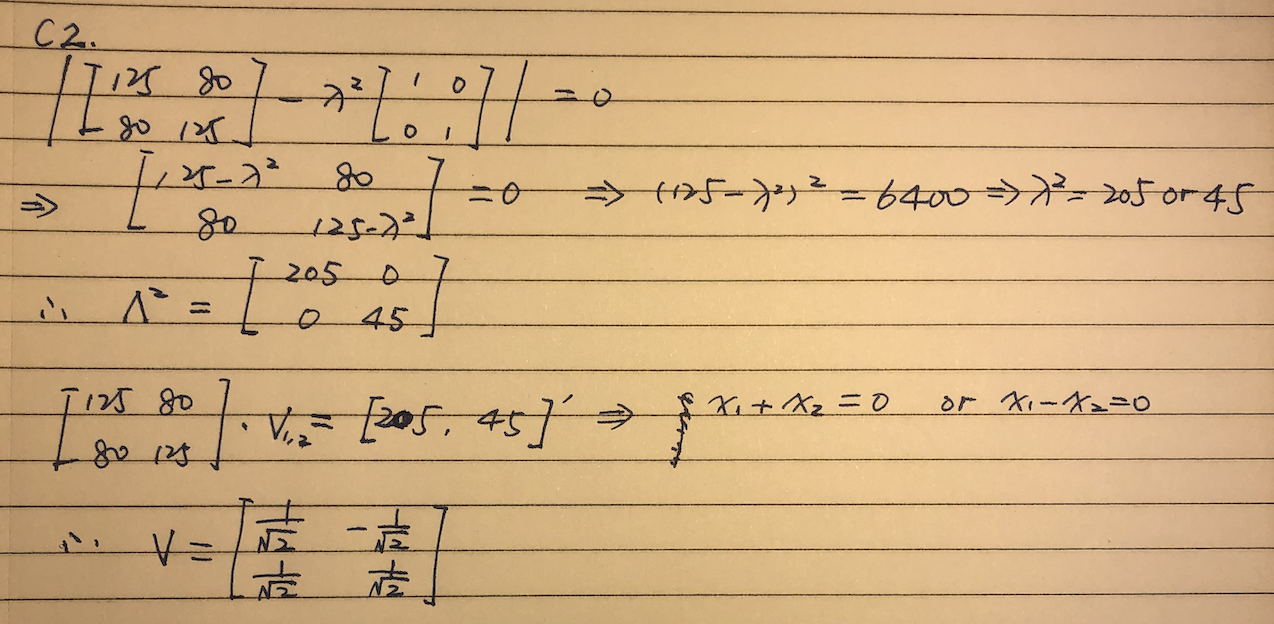 C2.
| [125 80; 80 125] - λ² [1 0; 0 1] | = 0
⇒ [125-λ² 80; 80 125-λ²] = 0 ⇒ (125-λ²)² = 6400 ⇒ λ² = 205 or 45
∴ Λ² = [205 0; 0 45]
[125 80; 80 125] · V₁,₂ = [205, 45]' ⇒ x₁ + x₂ = 0 or x₁ - x₂ = 0
∴ V = [1/√2 -1/√2; 1/√2 1/√2]